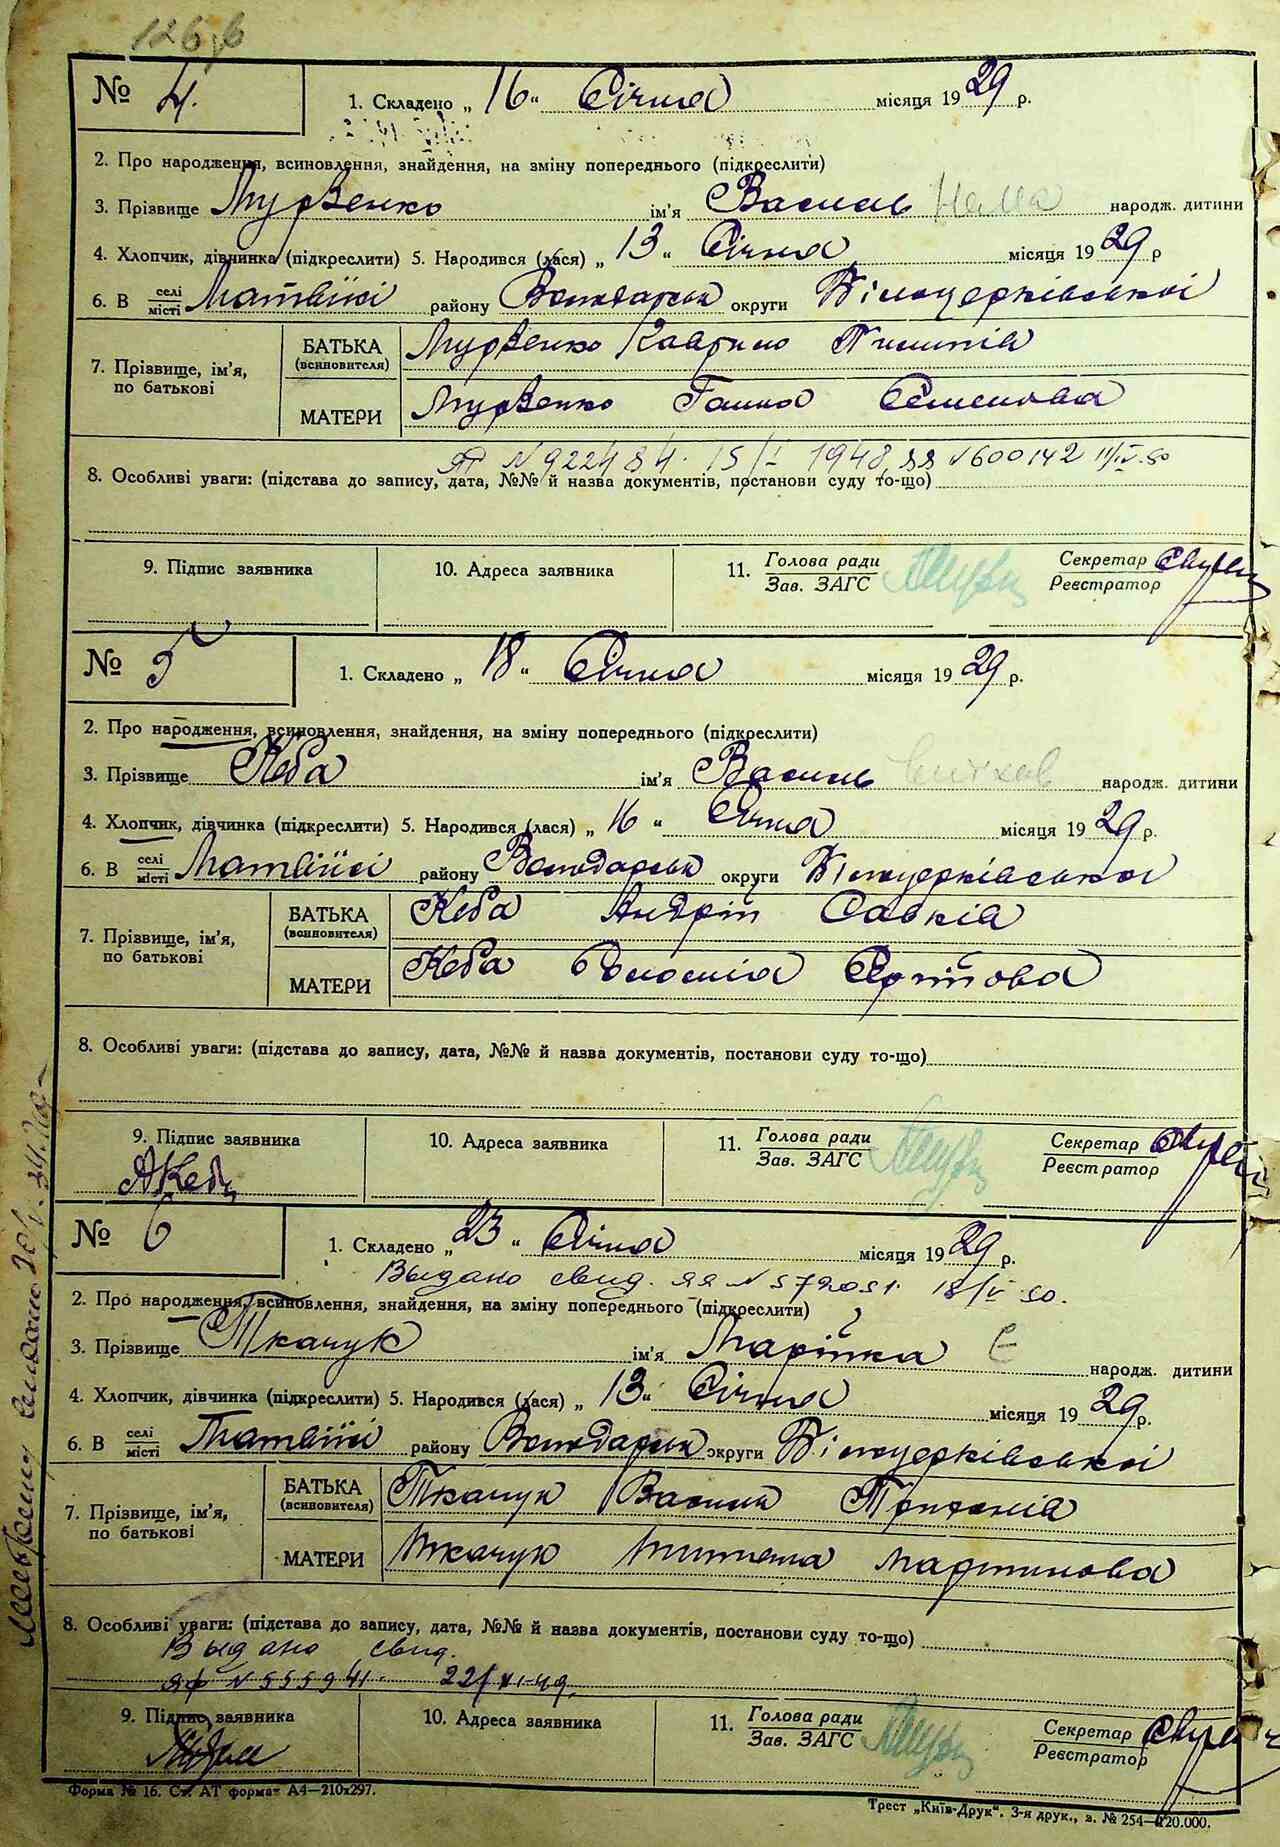 № 4. 1. Складено „16“ Січня місяця 1929 р.
2. Про народження, всиновлення, знайдення, на зміну попереднього (підкреслити)
3. Прізвище Мурзенко ім'я Василь народж. дитини
4. Хлопчик, дівчинка (підкреслити) 5. Народився (лася) „13“ Січня місяця 1929 р
6. В селі/місті Матвіїсі району Володарськ округи Білоцерківської
7. Прізвище, ім'я, по батькові
БАТЬКА (всиновителя) Мурзенко Каврило Пилипів
МАТЕРИ Мурзенко Ганна Семенова
N 922484. 15/I 1948, ЯЯ N 600142 11/IV.50
8. Особливі уваги: (підстава до запису, дата, №№ й назва документів, постанови суду то-що)
9. Підпис заявника 10. Адреса заявника 11. Голова ради/Зав. ЗАГС Секретар/Реєстратор
№ 5 1. Складено „18“ Січня місяця 1929 р.
2. Про народження, всиновлення, знайдення, на зміну попереднього (підкреслити)
3. Прізвище Кеба ім'я Василь народж. дитини
4. Хлопчик, дівчинка (підкреслити) 5. Народився (лася) „16“ Січня місяця 1929 р.
6. В селі/місті Матвіїсі району Володарськ округи Білоцерківської
7. Прізвище, ім'я, по батькові
БАТЬКА (всиновителя) Кеба Андрій Савків
МАТЕРИ Кеба Соломія
8. Особливі уваги: (підстава до запису, дата, №№ й назва документів, постанови суду то-що)
9. Підпис заявника 10. Адреса заявника 11. Голова ради/Зав. ЗАГС Секретар/Реєстратор
АКеба
№ 6 1. Складено „23“ Січня місяця 1929 р.
Выдано свид. ЯЯ N 572051. 18/IV 50.
2. Про народження, всиновлення, знайдення, на зміну попереднього (підкреслити)
3. Прізвище Ткачук ім'я Марійка Є народж. дитини
4. Хлопчик, дівчинка (підкреслити) 5. Народився (лася) „13“ Січня місяця 1929 р.
6. В селі/місті Матвіїсі району Володарськ округи Білоцерківської
7. Прізвище, ім'я, по батькові
БАТЬКА (всиновителя) Ткачук Василь
МАТЕРИ Ткачук Мартинова
8. Особливі уваги: (підстава до запису, дата, №№ й назва документів, постанови суду то-що)
Выдано свид.
ЯФ N 555941. 22/XI-49.
9. Підпис заявника 10. Адреса заявника 11. Голова ради/Зав. ЗАГС Секретар/Реєстратор
Форма № 16. Ст. АТ формат А4—210х297.
Трест „Київ-Друк“. 3-я друк., з. № 254—120.000.